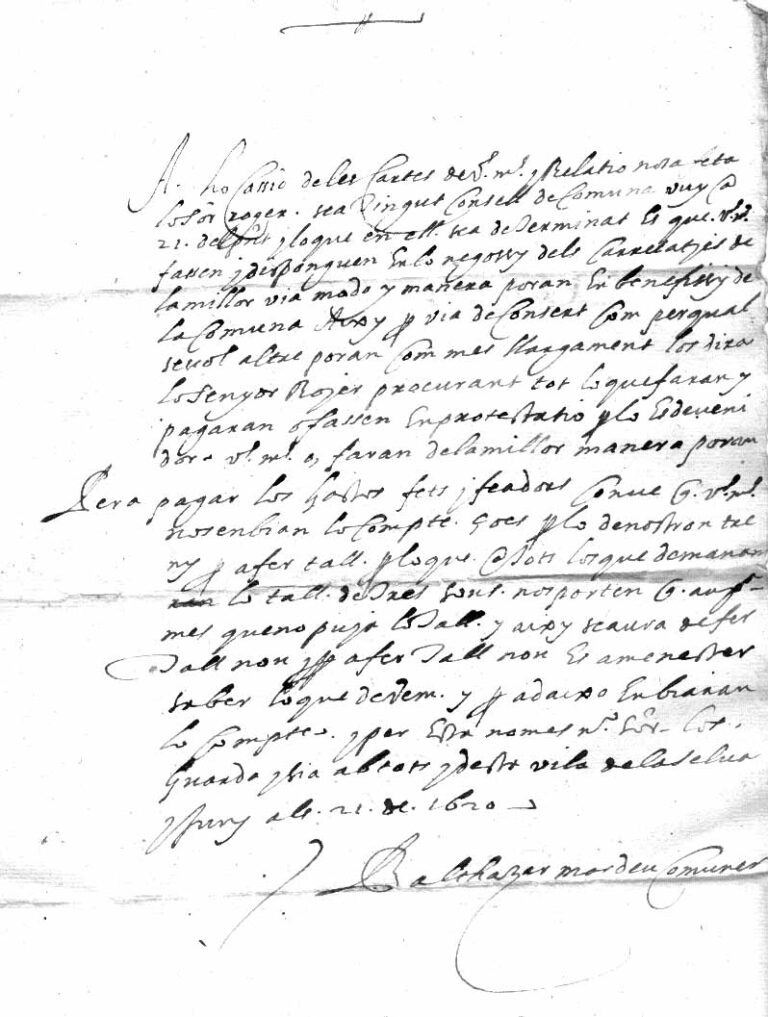 A ho Cassio deles Cartes de v.s m.s y Relatio nosa feta
lo sor Roger. sea tingut Consell de Comuna vuy @
21. del pnt y loque en ell. sea determinat Es que. v.s m.s
fassen y disponguen En lo negossy dels Carretatjes de
la millor via modo y manera poran En benefissy de
la Comuna Axy p via de Consert Com per qual
sevol altre poran Com mes llargament los dira
lo Senyor Rojer procurant tot lo que faran y
pagaran o fassen En protestatio p lo Esdeveni
dor. v.s m.s o, faran de la millor manera poran
Pera pagar los gastos fets y feadors Conve q. v.s m.s
nos enbian lo Compte. Goes p lo de nostron tre
ny p a fer tall. p lo que @ tots los que demanam
lo tall. de tres sous. nos porten q.
mes que no puja lo tall. y aixy seaura de fer
tall nou y p a fer tall nou Es a menester
saber lo que devem. y p adaixo Enbiaran
lo Compte. y per Esta nomes n.e Sor. los.
Guarde y sia ab tots y desta vila dela Selva
y Juny als. 21. de. 1620
Balthazar mordeu Comuner